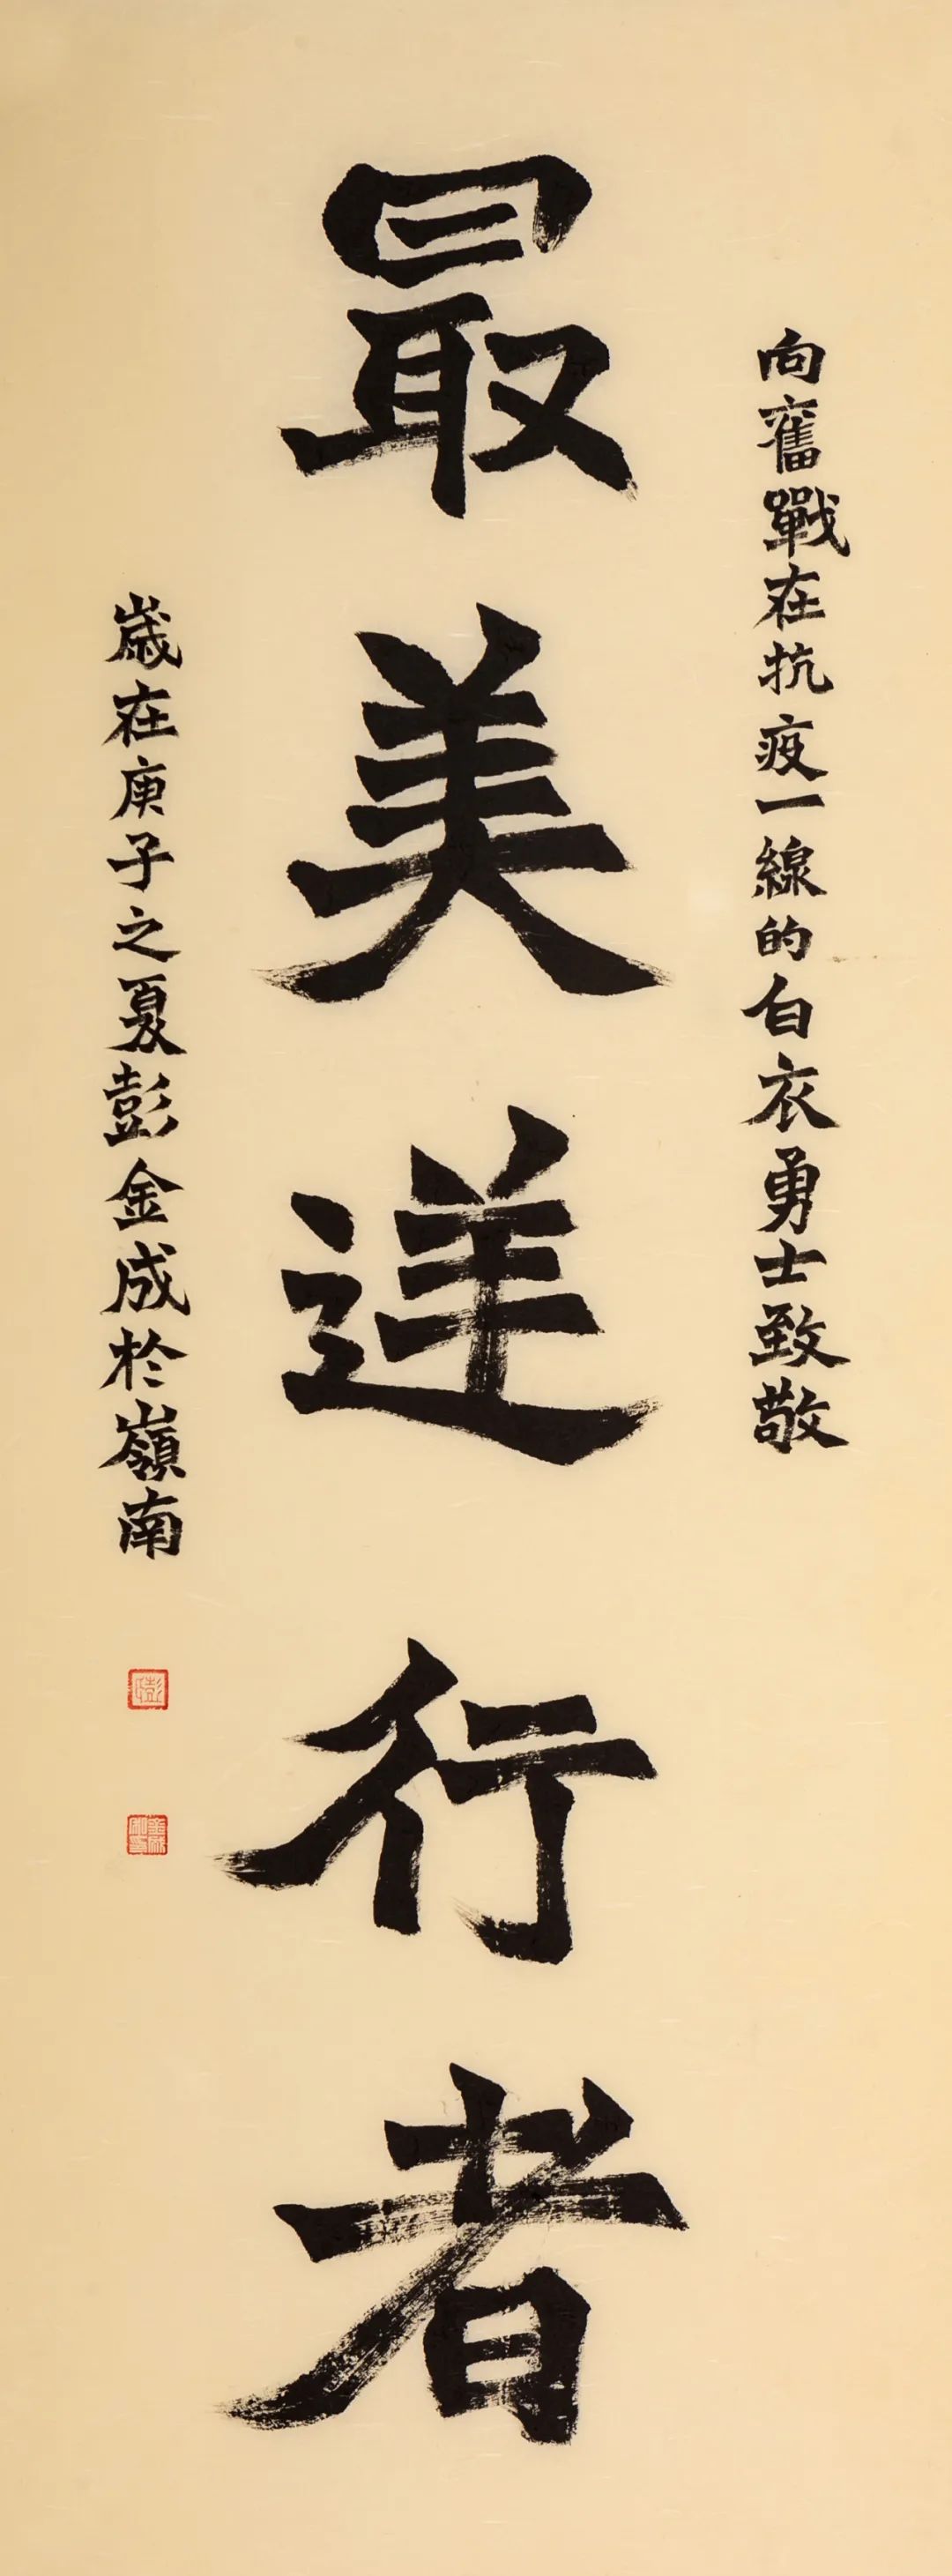 向奮戰在抗疫一線的白衣勇士致敬
最美逆行者
歲在庚子之夏彭金成於嶺南